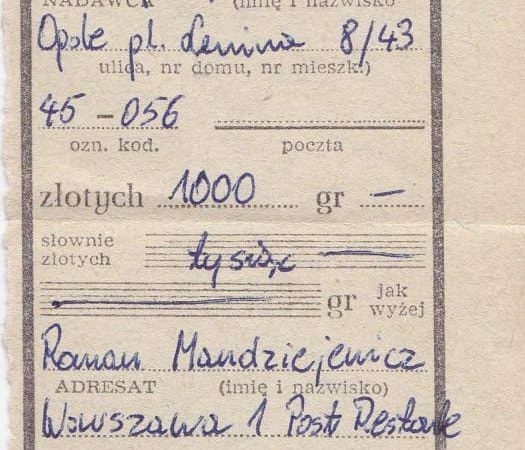 NADAWCA (imię i nazwisko
Opole pl. Lenina 8/43
ulica, nr domu, nr mieszk.)
45-056
ozn. kod. poczta
złotych 1000 gr —
słownie złotych tysiąc —
gr jak wyżej
Roman Mandziejewicz
ADRESAT (imię i nazwisko)
Warszawa 1 Post Restante